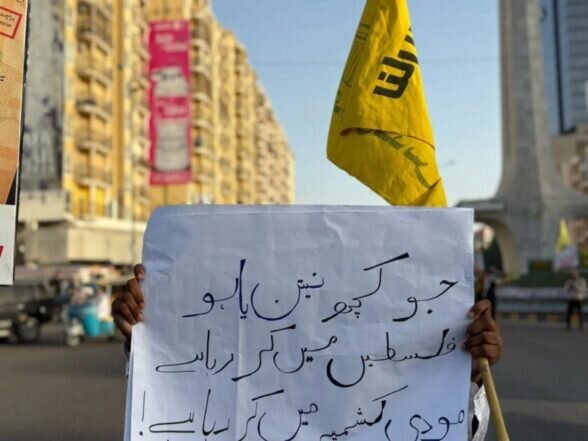 جو کچھ نیتن یاہو
فلسطین میں کر رہا ہے
مودی کشمیر میں کر رہا ہے!